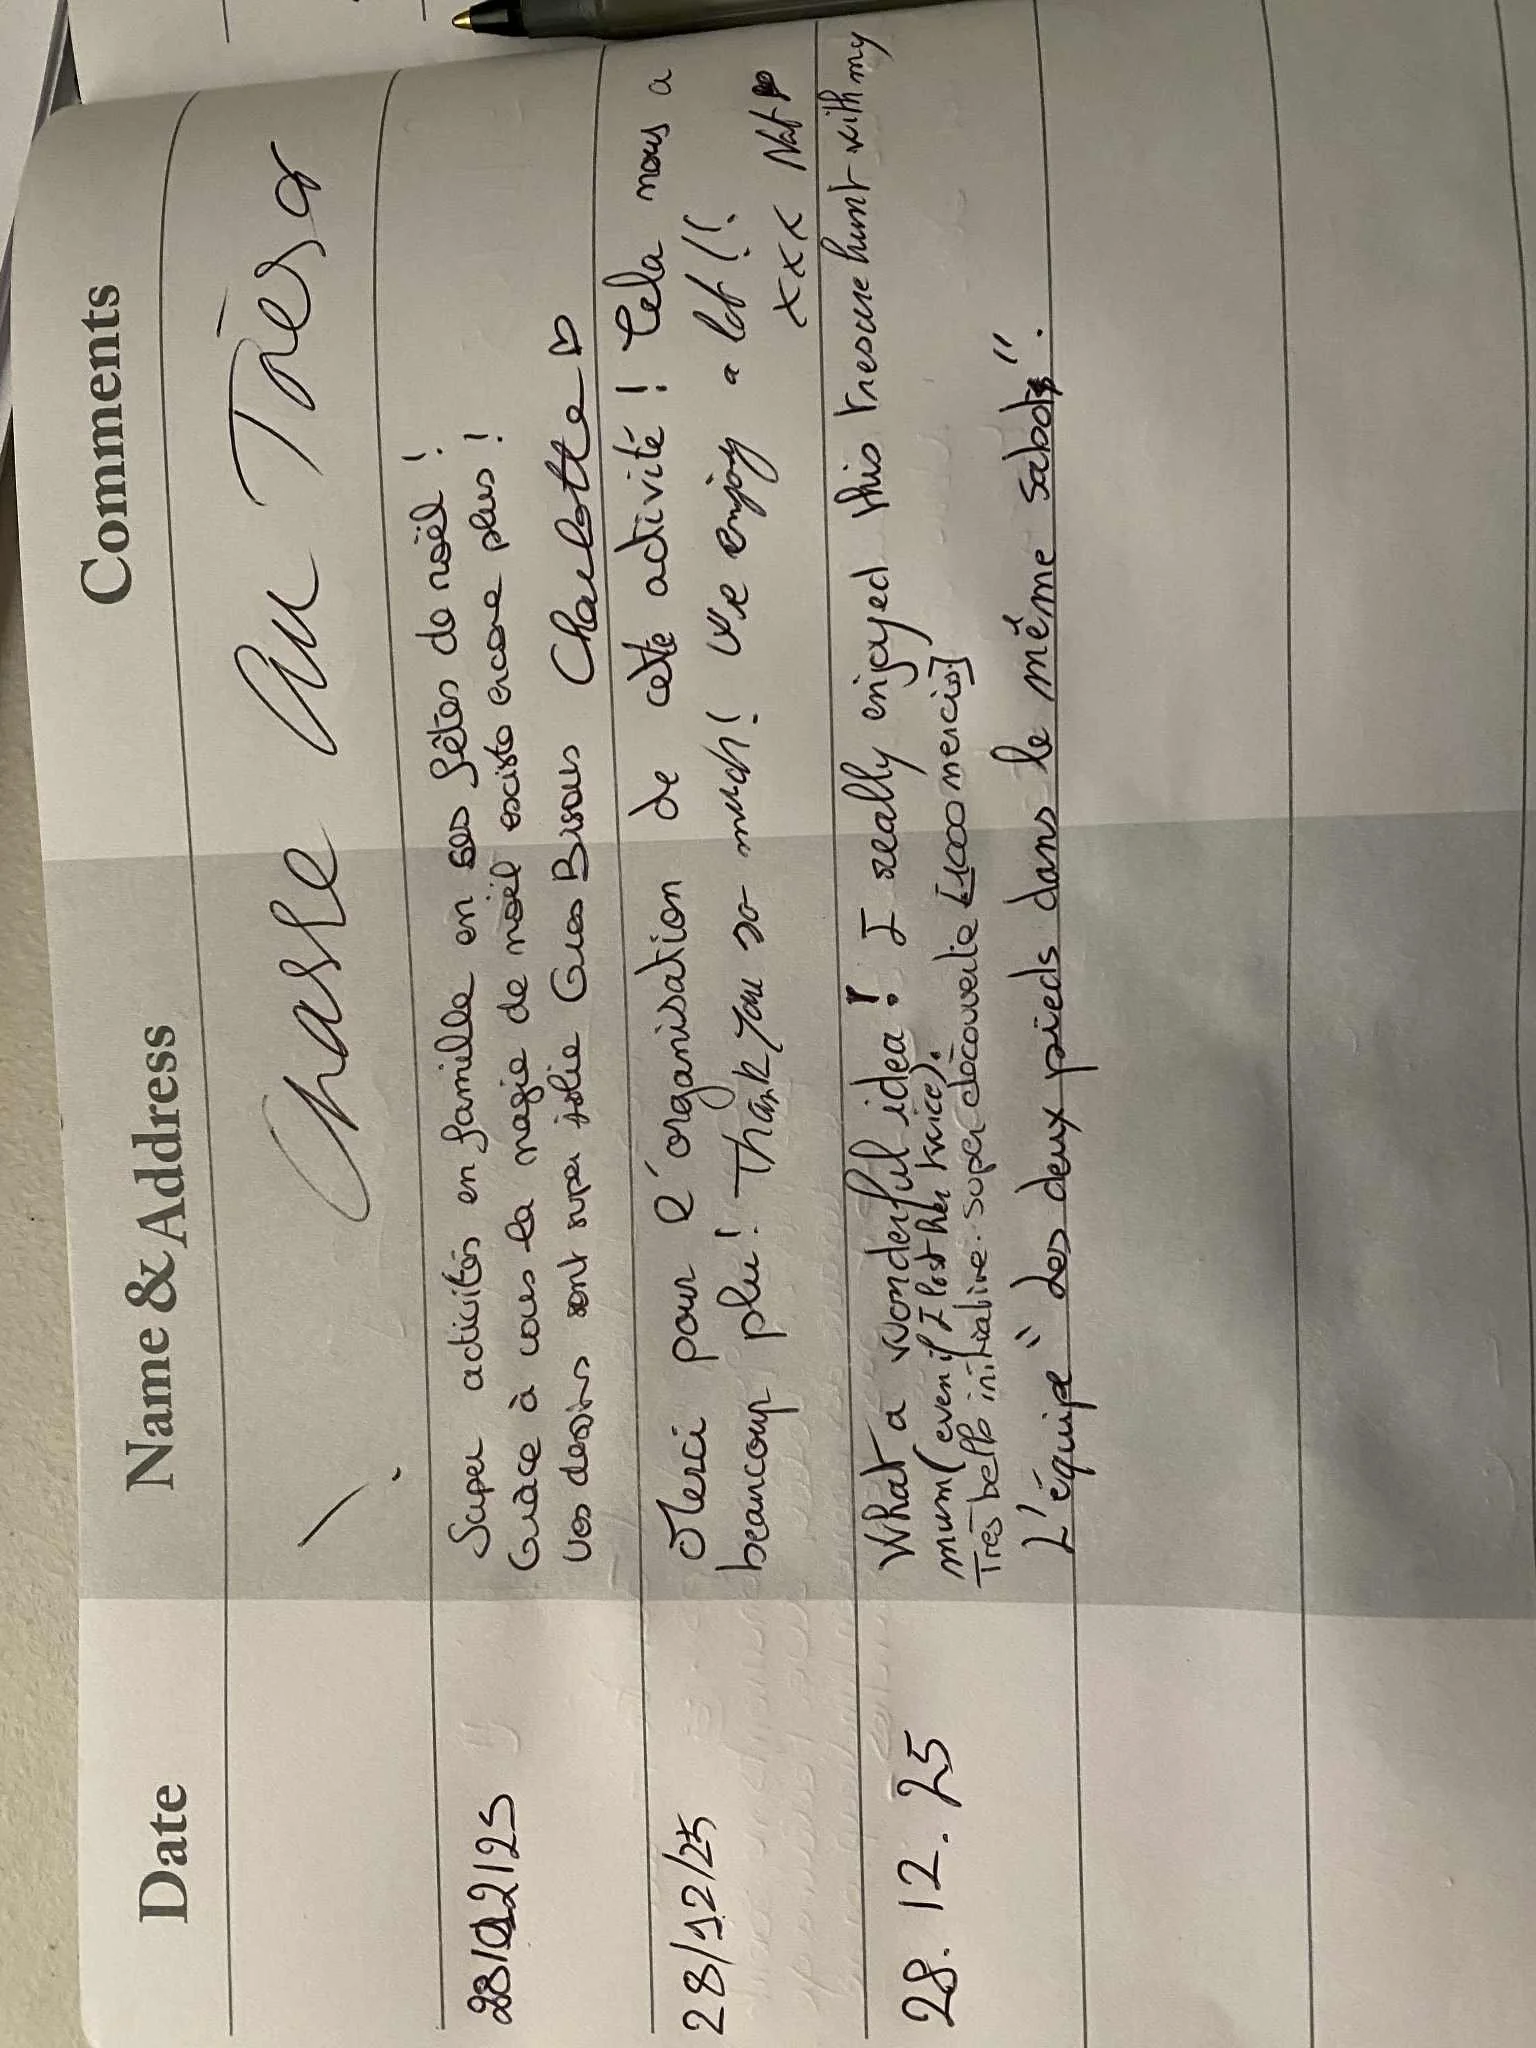 Date Name & Address Comments
Chasse Au Trèsor
28/12/25 Super activités en famille en ses fêtes de noël !
Grâce à vous la magie de noël existe encore plus !
Vos dessins sont super jolie Gros Bisous Charlotte ♡
28/12/25 Merci pour l'organisation de cette activité ! Cela nous a
beaucoup plu ! Thank you so much ! We enjoy a lot !!
xxx Nat
28.12.25 What a wonderful idea ! I really enjoyed this tresure hunt with my
mum (even if I lost her twice).
Très belle initiative. super découverte [1000 mercis]
L'équipe "des deux pieds dans le même sabots".